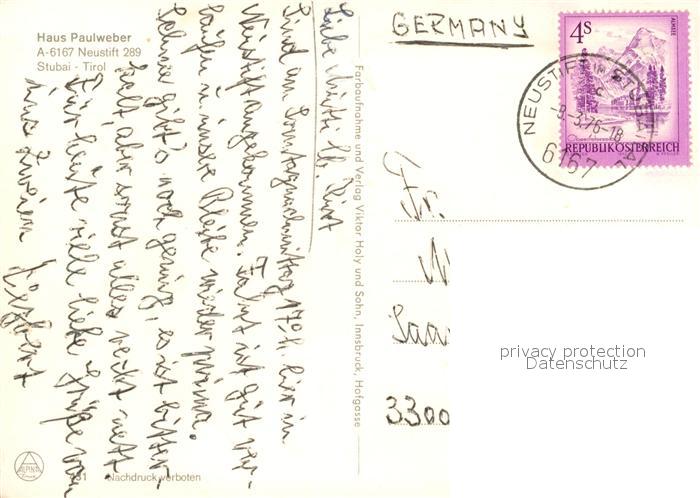 Haus Paulweber
A-6167 Neustift 289
Stubai - Tirol
Liebe Mutti
Sind am Sonntagnachmittag 17ºº h. hier in
Neustift angekommen. Fahrt ist gut ver-
laufen u. unsere Bleibe wieder prima.
Schnee gibt's noch genug, es ist bitter-
kalt, aber sonst alles recht nett
Für heute viele liebe Grüße von
uns Zweien
Farbaufnahme und Verlag Viktor Holy und Sohn, Innsbruck, Hofgasse
GERMANY
4S
ALMSEE
REPUBLIK ÖSTERREICH
NEUSTIFT IM STUBAITAL
-9.-3.76-18
6167
Fr.
Saa
3300
privacy protection
Datenschutz
ALPINA
31 Nachdruck verboten